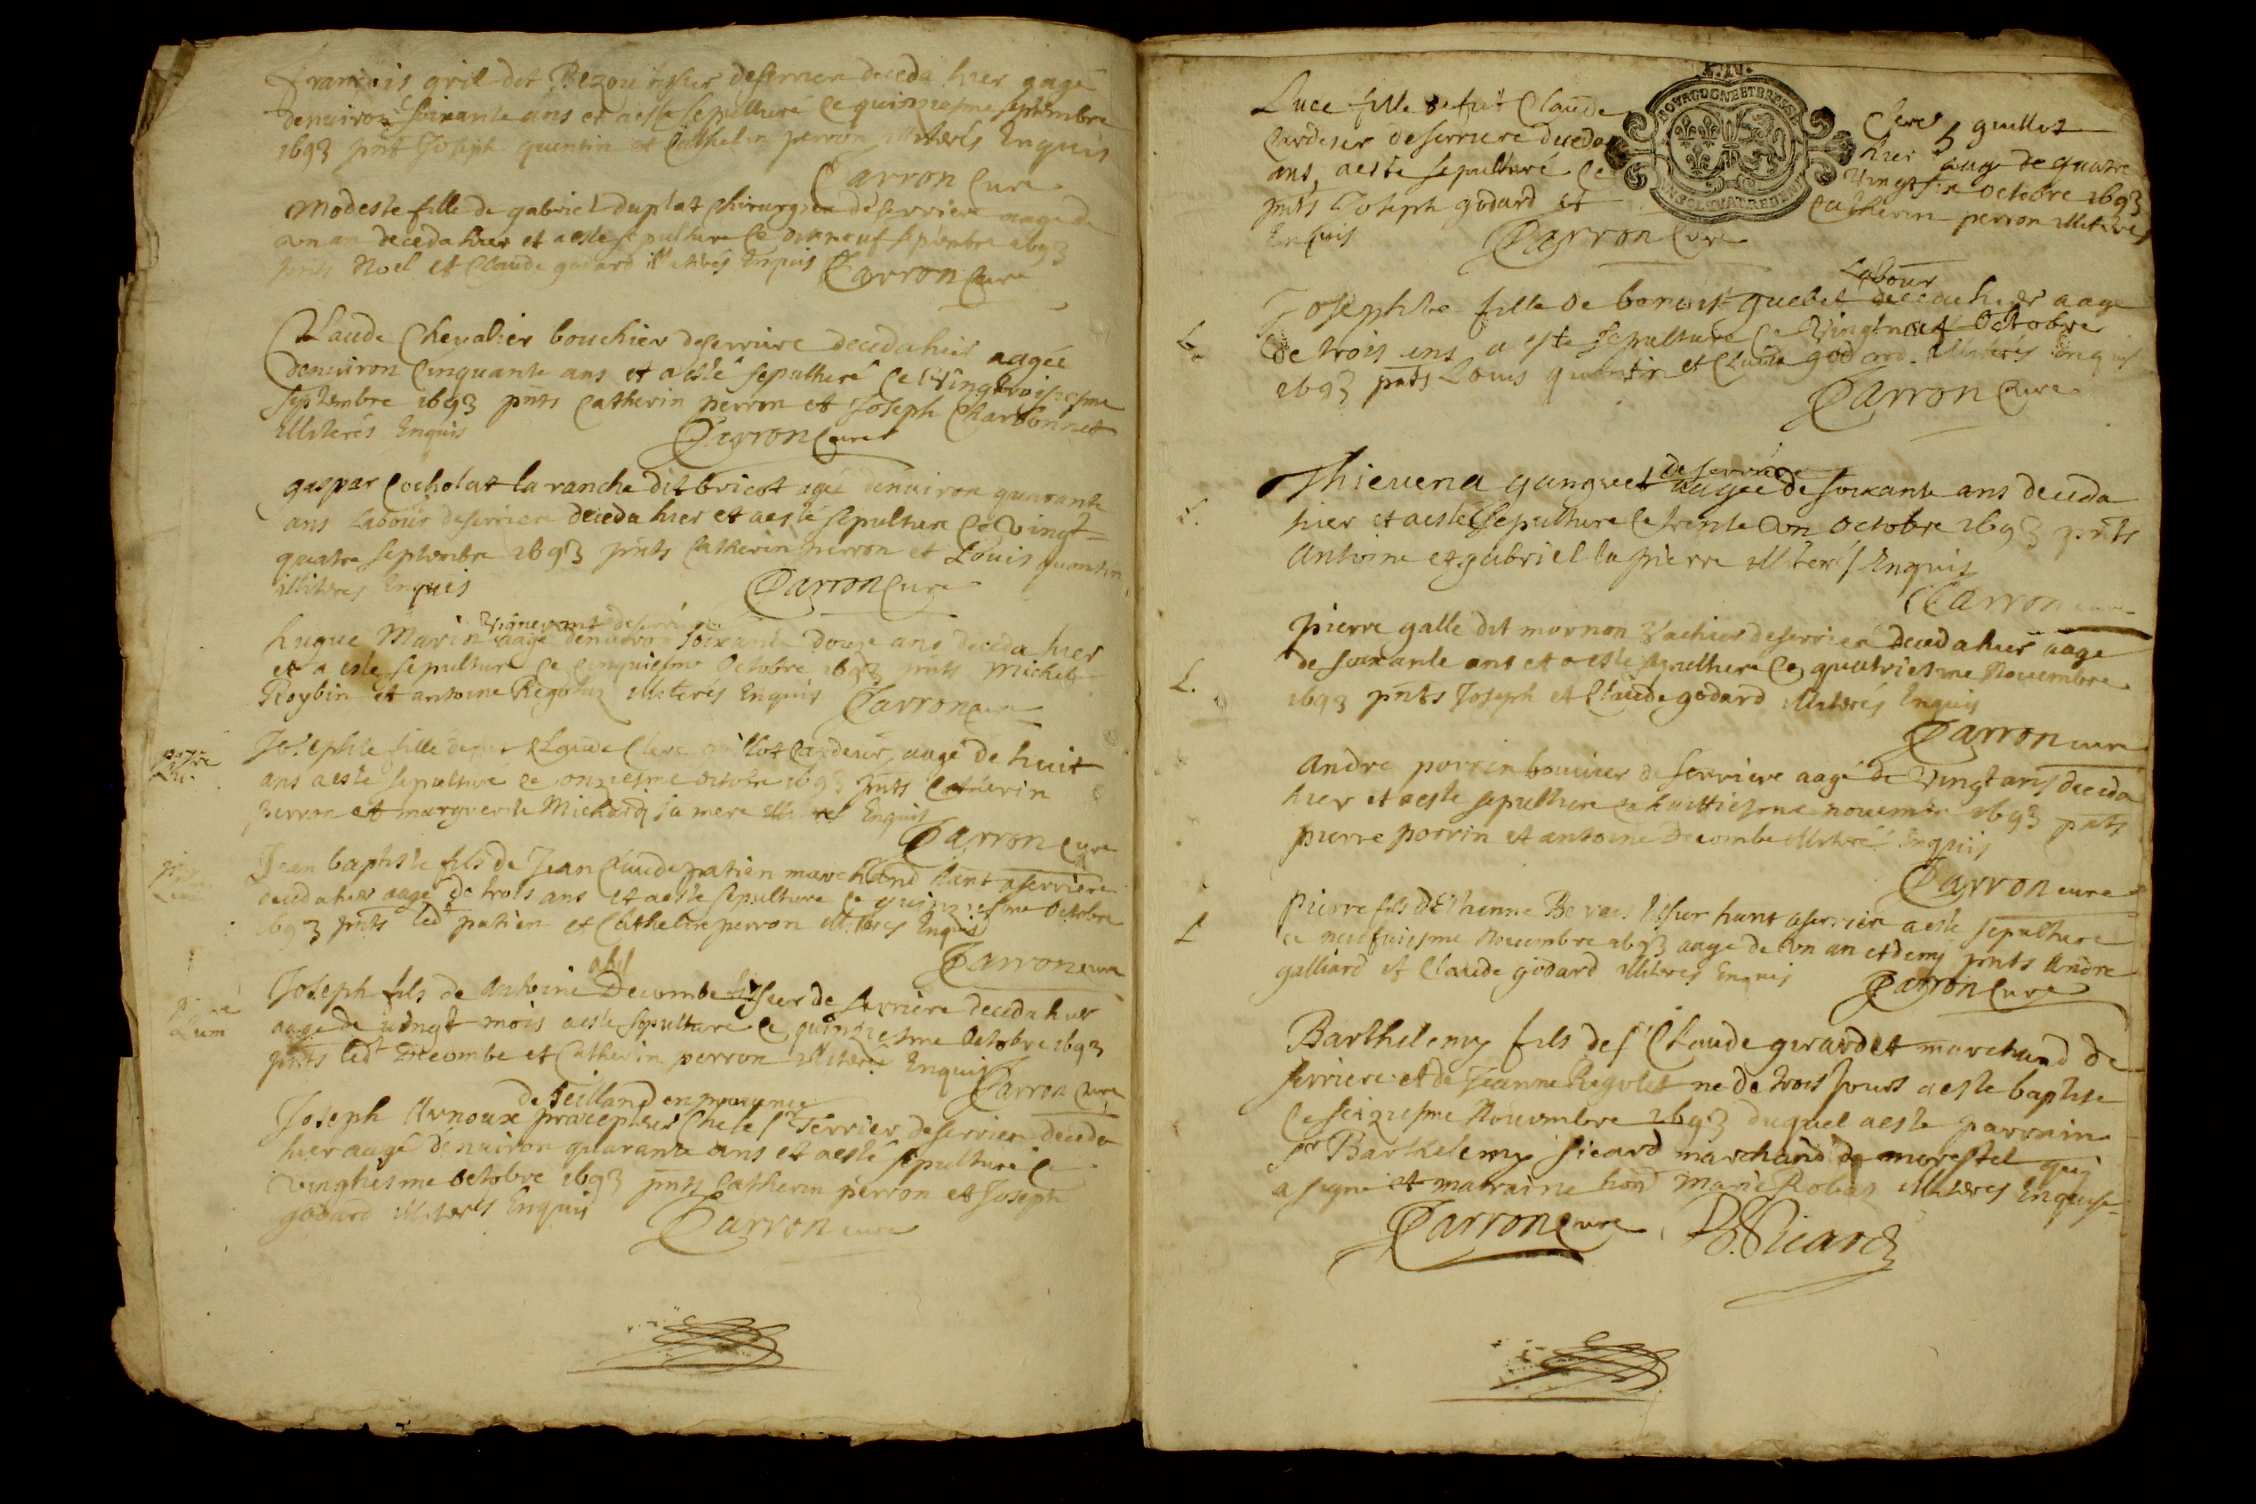 François gril dit Bizou tissier deserriere deceda hier aagé
denuiron soixante ans et a esté sepulturé ce quinziesme septembre
1693 pnts Joseph quentin et Cathelin perron illiterés Enquis
Carron Curé
Modeste fille de gabriel duplat chirurgien deserriere aagé de
un an deceda hier et a esté sepulture ce dixneuf septembre 1693
pnts Noel et Claude godard illiterés Enquis Carron Curé
Claude Chevalier bouchier deserriere deceda hier aagée
denuiron Cinquante ans et a esté sepulturé ce vingtroisiesme
septembre 1693 pnts Catherin perron et Joseph Charbonnet
illiterés Enquis Carron Curé
gaspar Cocholat la ranche dit bricot agé denuiron quarante
ans Labour deserriere deceda hier et a esté sepulture ce vingt
quatre septembre 1693 pnts Catherin perron et Louis quentin
illiteres Enquis Carron Cure
vigneront deserriere
hugue Marin aagé denuiron soixante douze ans deceda hier
et a este sepulture ce cinquiesme Octobre 1693 pnts Michel
Roybin et antoine Regolet illiterés Enquis Carron Curé
Josephte fille de Claude Clerc guillot Cardeur, aagé de huit
ans a esté sepulturé ce onziesme octobre 1693 pnts Catherin
perron et marguerite Michard sa mere Enquis
Carron Cure
Jean baptiste fils de Jean Claude patien marchand hant a serriere
deceda hier aagé de trois ans et a esté sepulture ce quinziesme Octobre
1693 pnts ledt patien et Cathelin perron illiterés Enquis
Carron cure
Joseph fils de Antoine Decombe tissier de serriere deceda hier
aagé de vingt mois a esté sepulturé ce quinziesme Octobre 1693
pnts ledt Decombe et Catherin perron illiteré Enquis
Carron Cure
de Seilland en prouence
Joseph Arnoux precepteur Che le Sr Terrier deserriere deceda
hier aagé denuiron quarante ans et a esté sepulturé ce
vingtiesme octobre 1693 pnts Catherin perron et Joseph
godard illiterés Enquis Carron cure
Luce fille de fut Claude Clerc guillot
Cardeur deserriere deceda hier aagé de quatre
ans, a esté sepulturé ce vingt six octobre 1693
pnts Joseph godard et Catherin perron illiterés
Enquis Carron Cure
BOVRGOGNE ET BRESSE
Labour
Josephte fille de benoist guebet deceda hier aagé
de trois ans a esté sepulturé ce vingtneuf Octobre
1693 pnts Louis quentin et Claude godard illiterés Enquis
Carron Cure
L.
deserriere
Thieuena ganguet aagée de soixante ans deceda
hier et a esté sepulture ce trente un Octobre 1693 pnts
Antoine et gabriel la pierre illiterés Enquis
Carron cure
L.
pierre galle dit mornon vachier deserriere deceda hier aage
de soixante ans et a esté sepulture ce quatriesme Nouembre
1693 pnts Joseph et Claude godard illiterés Enquis
Carron cure
L.
andre perrin bouuier deserriere aagé de vingt ans deceda
hier et a esté sepulture ce huittiesme nouembre 1693 pnts
pierre perrin et antoine Decombe illiteré Enquis
Carron cure
pierre fils d'Ethienne tissier hant a serriere a esté sepulture
ce neufuiesme Nouembre 1693 aagé de un an et demy pnts Andre
galliard et Claude godard illiterés Enquis Carron Cure
L
Barthelemy fils de sr Claude girardet marchand de
serriere et de Jeanne Regolet né de trois Jours a esté baptisé
ce seiziesme Nouembre 1693 duquel a esté parrain
sr Barthelemy sicard marchand de morestel qui
a signé et marraine hond Marie Robas illiteres Enquise
Carron Cure B. Sicard